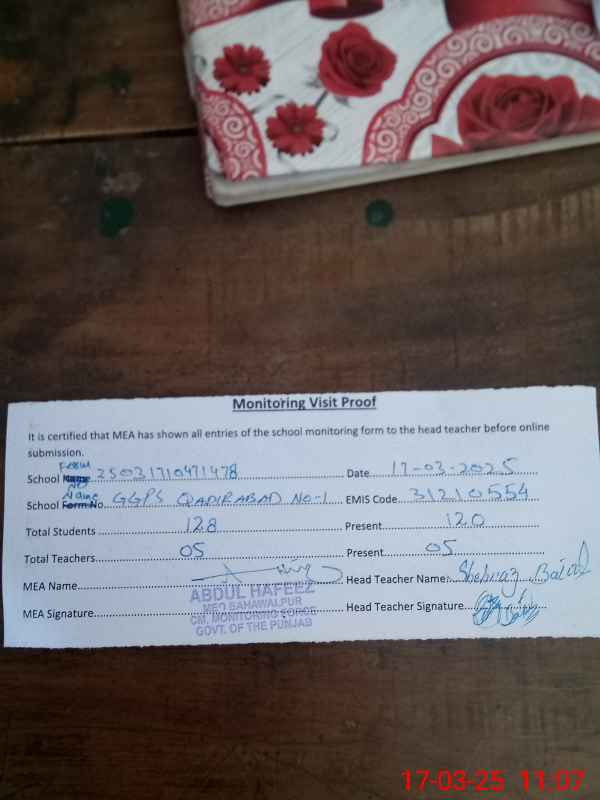 Monitoring Visit Proof
It is certified that MEA has shown all entries of the school monitoring form to the head teacher before online
submission.
School Name Form No 25031710471478 Date 17-03-2025
School Form No Name GGPS QADIRABAD NO-1 EMIS Code 31210554
Total Students 128 Present 120
Total Teachers 05 Present 05
MEA Name Head Teacher Name:
MEA Signature Head Teacher Signature
ABDUL HAFEEZ
MEO BAHAWALPUR
CM, MONITORING FORCE
GOVT. OF THE PUNJAB
17-03-25 11:07